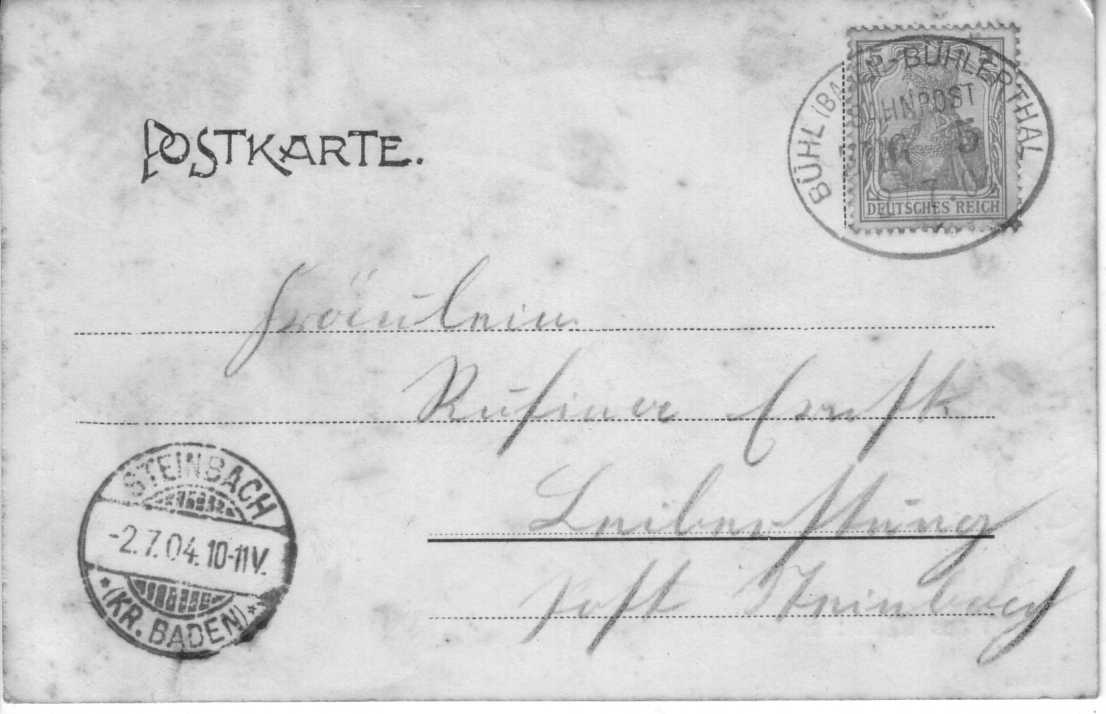 POSTKARTE.
BÜHL (BADEN)-BÜHLERTHAL
BAHNPOST
ZUG 5
7
DEUTSCHES REICH
Fräulein
Ernst
Leiberstung
Post Steinbach
STEINBACH
-2.7.04.10-11V.
*(KR. BADEN)*